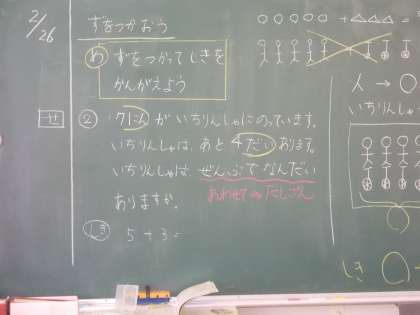 2/26
ずをつかおう
め ずをつかってしきを
かんがえよう
せ
② 7にんがいちりんしゃにのっています。
いちりんしゃは、あと4だいあります。
いちりんしゃは、ぜんぶでなんだい
ありますか。
あわせて→たしざん
しき 5+3=
○○○○○+△△△=
人→○
いちりんしゃ
しき ○+